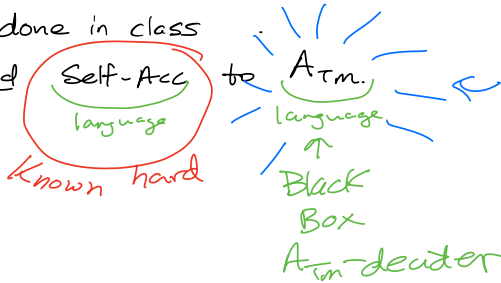 done in class
d Self-Acc to A_TM.
language language
Known hard
Black
Box
A_TM-decider